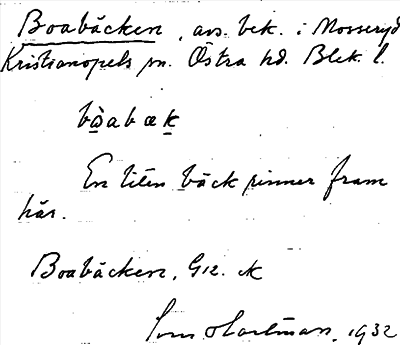 Boabäcken, avs. bek. i Mosseryd
Kristianopels sn. Östra hd. Blek. l.
bòabæk
En liten bäck rinner fram
här.
Boabäcken, G12.
Sven Hartman, 1932